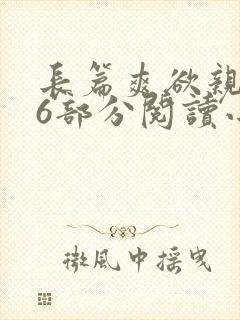 長篇爽欲親
6部分閱讀
微風中搖曳